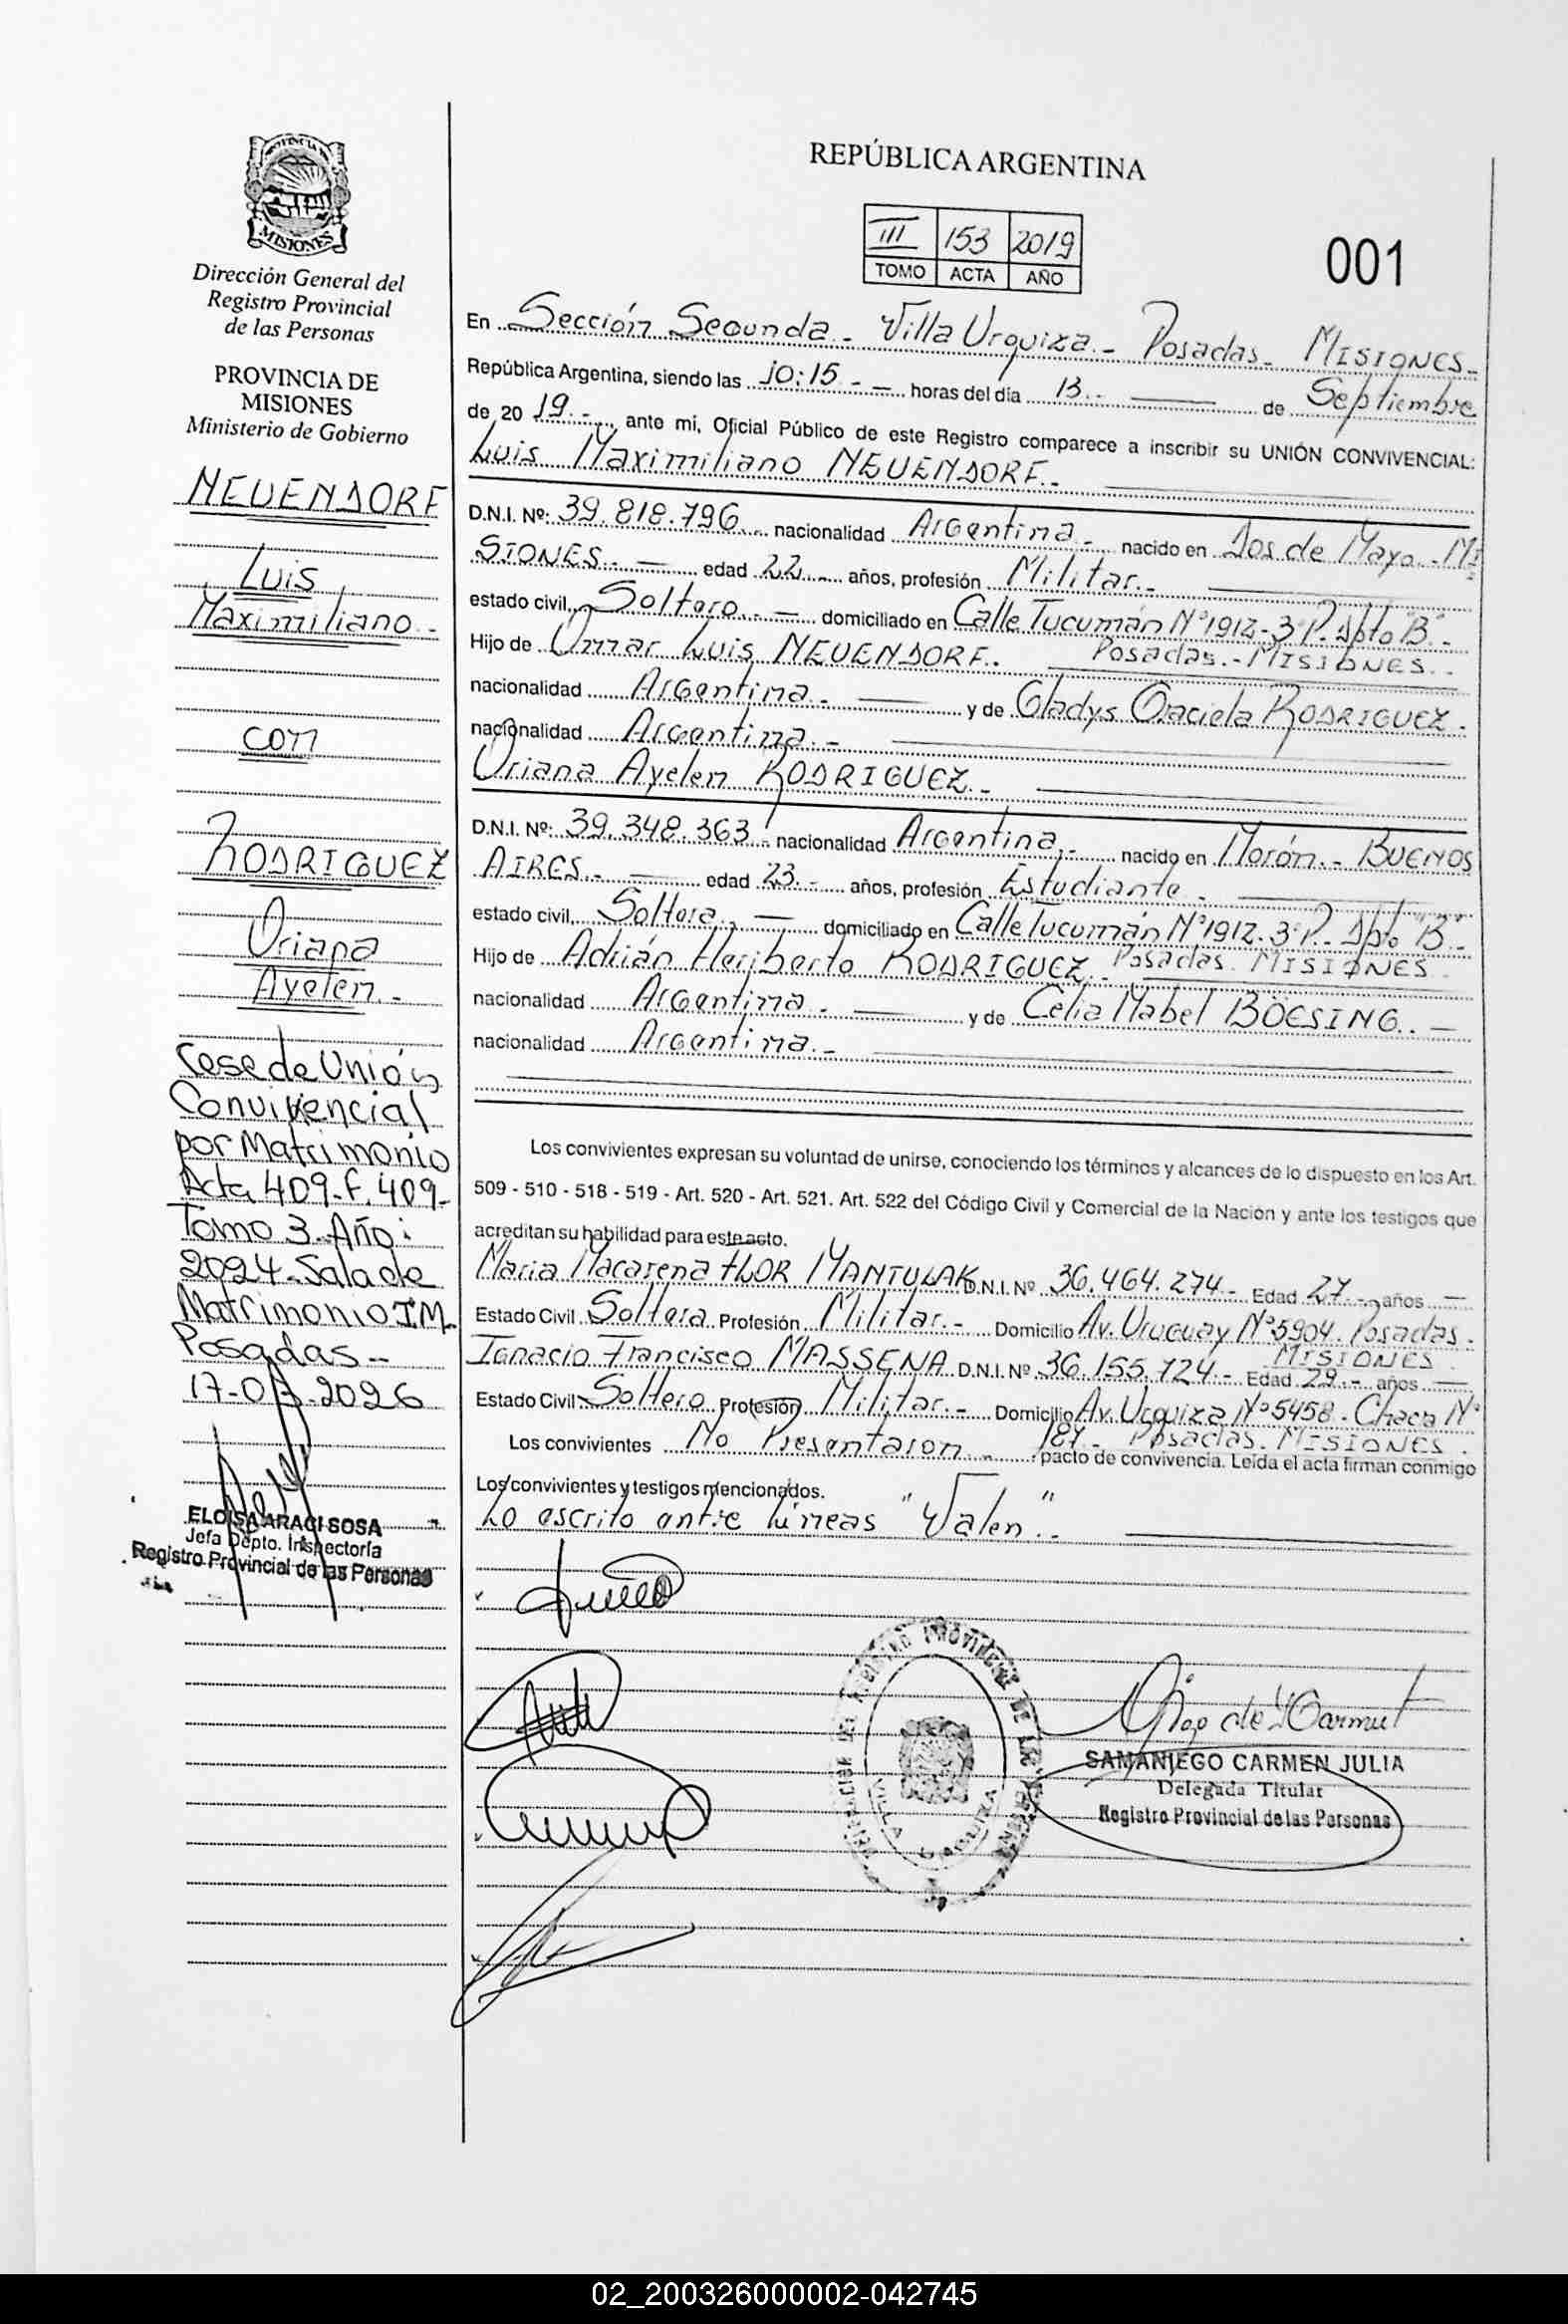 Dirección General del
Registro Provincial
de las Personas
PROVINCIA DE
MISIONES
Ministerio de Gobierno
NEUENDORF
Luis
Maximiliano.-
con
RODRIGUEZ
Oriana
Ayelen.-
Cese de Unión
Convivencial
por Matrimonio
Acta 409-F. 409-
Tomo 3. Año:
2024. Sala de
Matrimonio I.M.
Posadas--
2026
ELOISA ARACI SOSA
Jefa Depto. Inspectoría
Registro Provincial de las Personas
REPÚBLICA ARGENTINA
III 153 2019
TOMO ACTA AÑO
001
En Sección Segunda.- Villa Urquiza.- Posadas- MISIONES-
República Argentina, siendo las 10:15.- — horas del día 13.- — de Septiembre
de 20 19.- , ante mi, Oficial Público de este Registro comparece a inscribir su UNIÓN CONVIVENCIAL:
Luis Maximiliano NEUENDORF.-
D.N.I. Nº: 39.818.796.- nacionalidad Argentina.- nacido en Dos de Mayo.-MI
SIONES.- — edad 22.- años, profesión Militar.-
estado civil Soltero.- — domiciliado en Calle Tucumán Nº1912-3ºP.-Dpto"B".-
Hijo de Omar Luis NEUENDORF. Posadas.-MISIONES.-
nacionalidad Argentina.- — y de Gladys Graciela RODRIGUEZ.-
nacionalidad Argentina.-
Oriana Ayelen RODRIGUEZ.-
D.N.I. Nº: 39.348.363.- nacionalidad Argentina.- nacido en Morón.- BUENOS
AIRES.- — edad 23.- años, profesión Estudiante.-
estado civil Soltera.- — domiciliado en Calle Tucumán Nº1912.3ºP.-Dpto"B".-
Hijo de Adrián Heriberto RODRIGUEZ. Posadas. MISIONES.
nacionalidad Argentina.- — y de Celia Mabel BOESING.. —
nacionalidad Argentina.-
Los convivientes expresan su voluntad de unirse, conociendo los términos y alcances de lo dispuesto en los Art.
509 - 510 - 518 - 519 - Art. 520 - Art. 521. Art. 522 del Código Civil y Comercial de la Nación y ante los testigos que
acreditan su habilidad para este acto.
Maria Macarena FLOR MANTULAK D.N.I. Nº 36.464.274.- Edad 27.- años —
Estado Civil Soltera Profesión Militar.- Domicilio Av. Uruguay Nº5904. Posadas.
MISIONES.
Ignacio Francisco MASSENA D.N.I. Nº 36.155.724.- Edad 29.- años —
Estado Civil Soltero Profesión Militar.- Domicilio Av. Urquiza Nº5458. Chacra Nº
187.- Posadas. MISIONES.
Los convivientes No Presentaron.- pacto de convivencia. Leida el acta firman conmigo
Los convivientes y testigos mencionados.
Lo escrito entre lineas "Valen".-
DELEGACIÓN DEL REGISTRO PROVINCIAL DE LAS PERSONAS
VILLA URQUIZA
SAMANIEGO CARMEN JULIA
Delegada Titular
Registro Provincial de las Personas
02_200326000002-042745